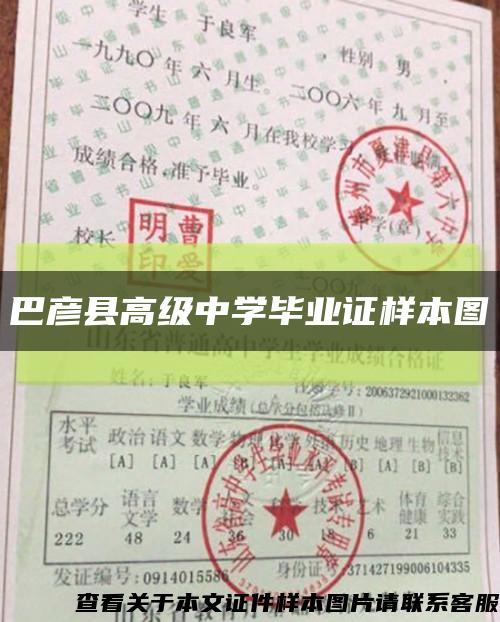 学生 于良军 ，性别 男 ，
一九九〇 年 六 月生。二〇〇六 年 九 月至
二〇〇九 年 六 月在我校学习
成绩合格，准予毕业。
德州市夏津县第六中学
校长
曹爱明印
学(章)
二〇〇九
巴彦县高级中学毕业证样本图
山东省普通高中学生学业成绩合格证
姓名：于良军 学号：2006372921000132362
学业成绩（总学分包括选修Ⅱ）
水平考试 政治 语文 数学 物理 化学 外语 历史 地理 生物 信息技术
[A] [A] [A] [B] [A] [B]
总学分 语言文学 数学 技术 艺术 体育健康 综合实践
222 48 24 36 30 18 6 11 33
发证编号：0914015586 身份证号：371427199006104335
查看关于本文证件样本图片请联系客服